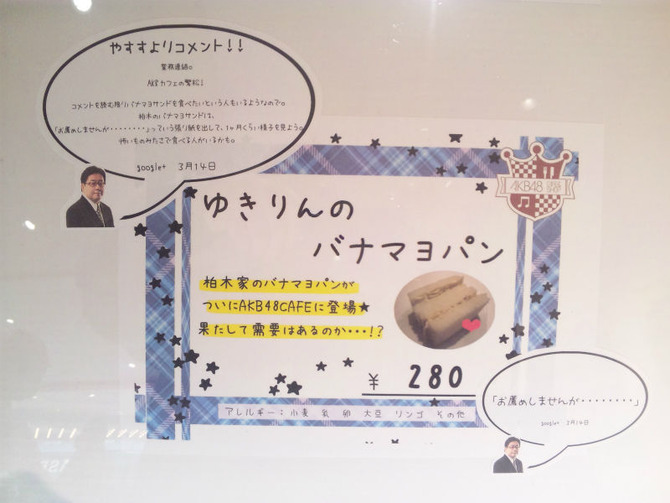 やすすよりコメント！！
業務連絡。
AKBカフェの繁松！
コメントを読む限りバナマヨサンドを食べたいという人もいるようなので。
柏木のバナマヨサンドは、
「お薦めしませんが・・・・・・・・」っていう張り紙を出して、1ヶ月くらい様子を見よう。
怖いものみたさで食べる人がいるかも。
google+ 3月14日
AKB48 CAFE & SHOP
ゆきりんの
バナマヨパン
柏木家のバナマヨパンが
ついにAKB48CAFEに登場★
果たして需要はあるのか・・・!?
¥ 280
アレルギー：小麦 乳 卵 大豆 リンゴ その他
「お薦めしませんが・・・・・・・・」
google+ 3月14日